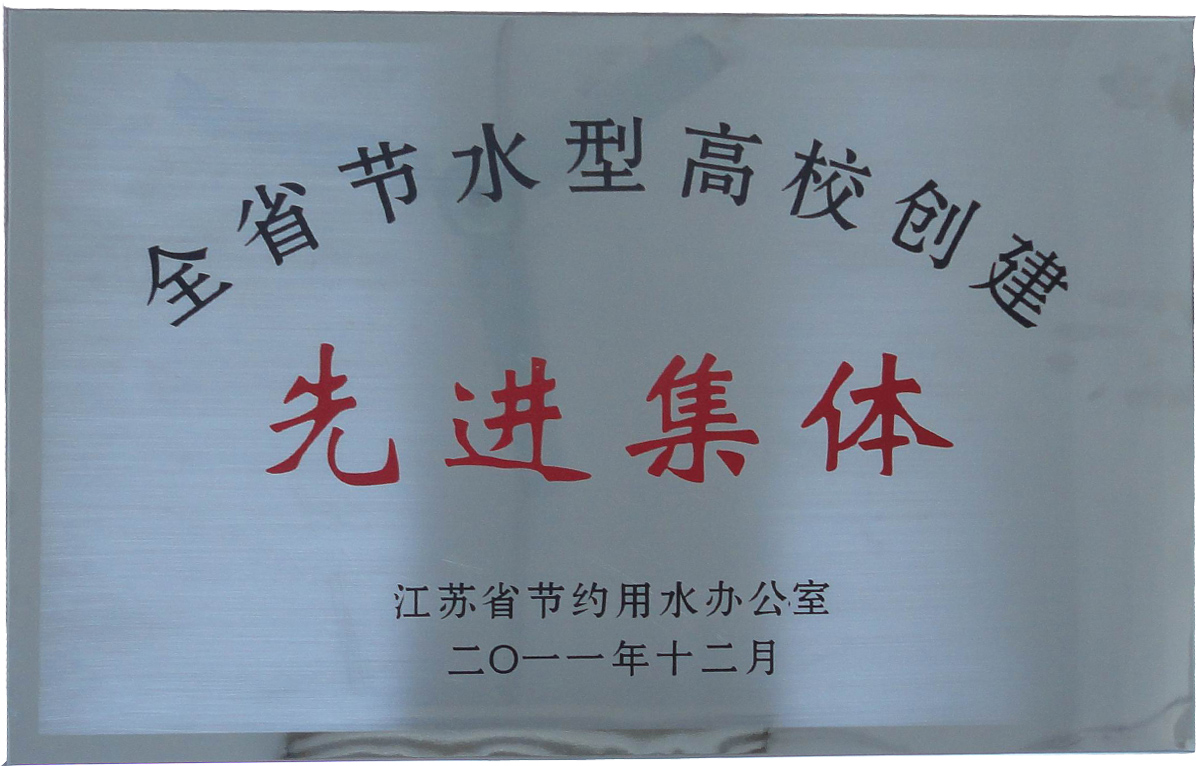 全省节水型高校创建
先进集体
江苏省节约用水办公室
二〇一一年十二月